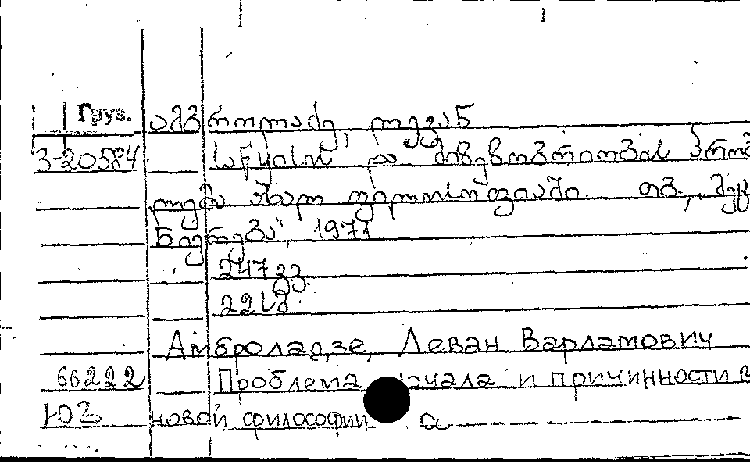 Груз. ამბროლაძე, ლევან
3-20584 საწყისის და მიზეზობრიობის პრობ
ლემა ახალ ფილოსოფიაში. თბ., "მეც
ნიერება", 1971
247 გვ.
22 სმ.
Амброладзе, Леван Варламович
66222 Проблема начала и причинности в
ЮЗ новой философии а